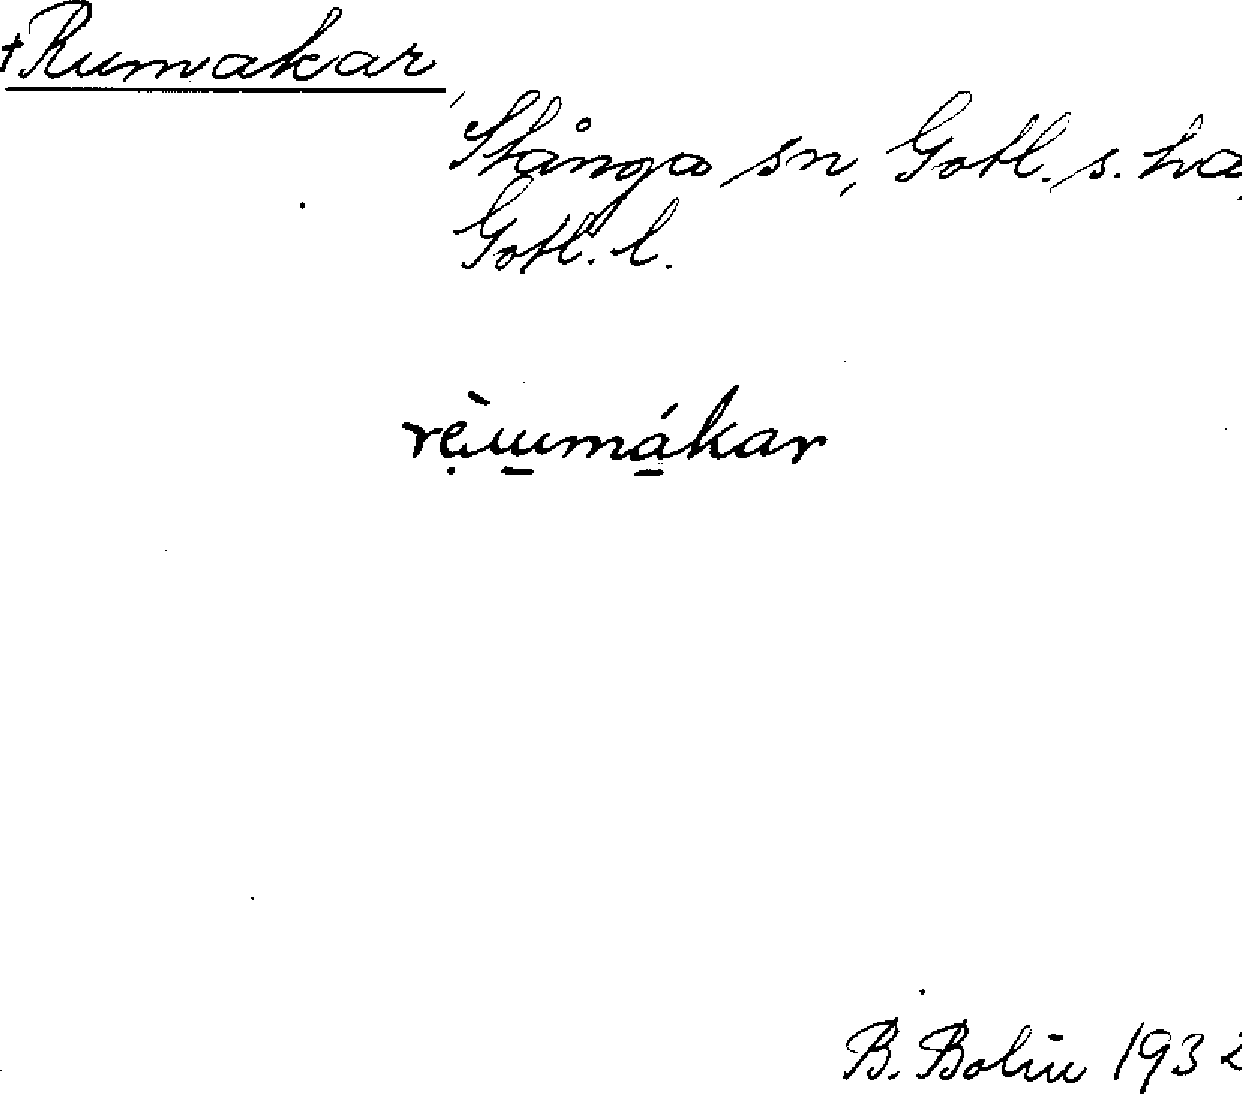 +Rumakar,
Stånga sn, Gotl. s. hd,
Gotl. l.
rẹ̀u̱má̱kar
B. Bolin 1932